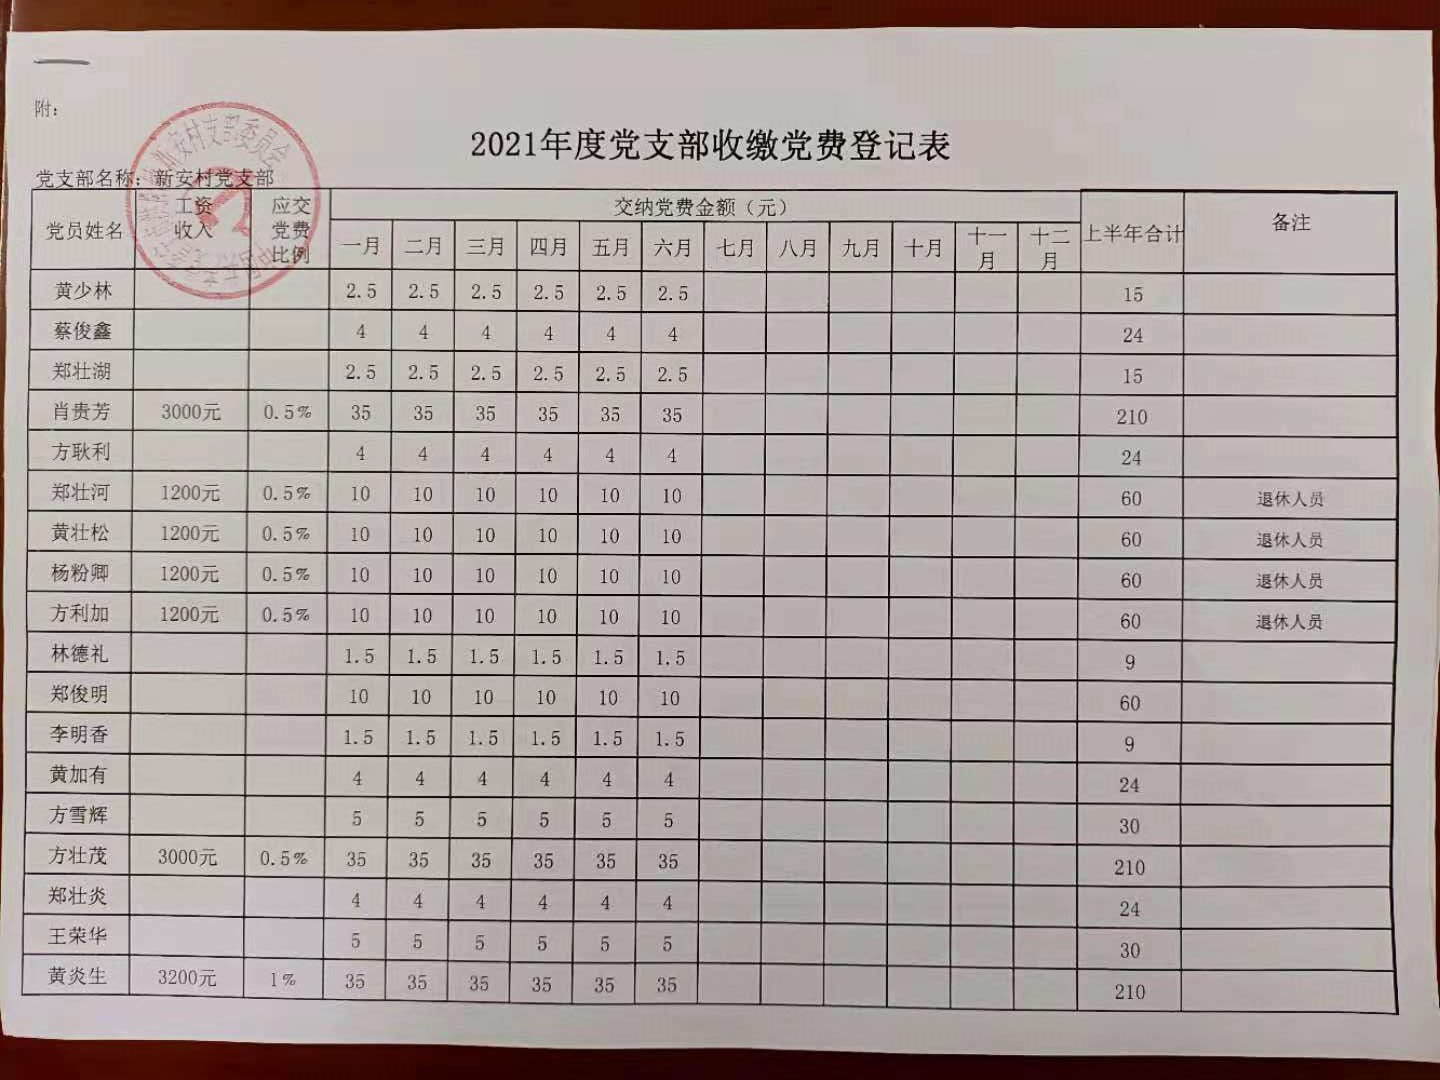 附：
2021年度党支部收缴党费登记表
党支部名称：新安村党支部
党员姓名 工资收入 应交党费比例 交纳党费金额（元） 上半年合计 备注
一月 二月 三月 四月 五月 六月 七月 八月 九月 十月 十一月 十二月
黄少林 2.5 2.5 2.5 2.5 2.5 2.5 15
蔡俊鑫 4 4 4 4 4 4 24
郑壮湖 2.5 2.5 2.5 2.5 2.5 2.5 15
肖贵芳 3000元 0.5% 35 35 35 35 35 35 210
方耿利 4 4 4 4 4 4 24
郑壮河 1200元 0.5% 10 10 10 10 10 10 60 退休人员
黄壮松 1200元 0.5% 10 10 10 10 10 10 60 退休人员
杨粉卿 1200元 0.5% 10 10 10 10 10 10 60 退休人员
方利加 1200元 0.5% 10 10 10 10 10 10 60 退休人员
林德礼 1.5 1.5 1.5 1.5 1.5 1.5 9
郑俊明 10 10 10 10 10 10 60
李明香 1.5 1.5 1.5 1.5 1.5 1.5 9
黄加有 4 4 4 4 4 4 24
方雪辉 5 5 5 5 5 5 30
方壮茂 3000元 0.5% 35 35 35 35 35 35 210
郑壮炎 4 4 4 4 4 4 24
王荣华 5 5 5 5 5 5 30
黄炎生 3200元 1% 35 35 35 35 35 35 210
安村支部委员会